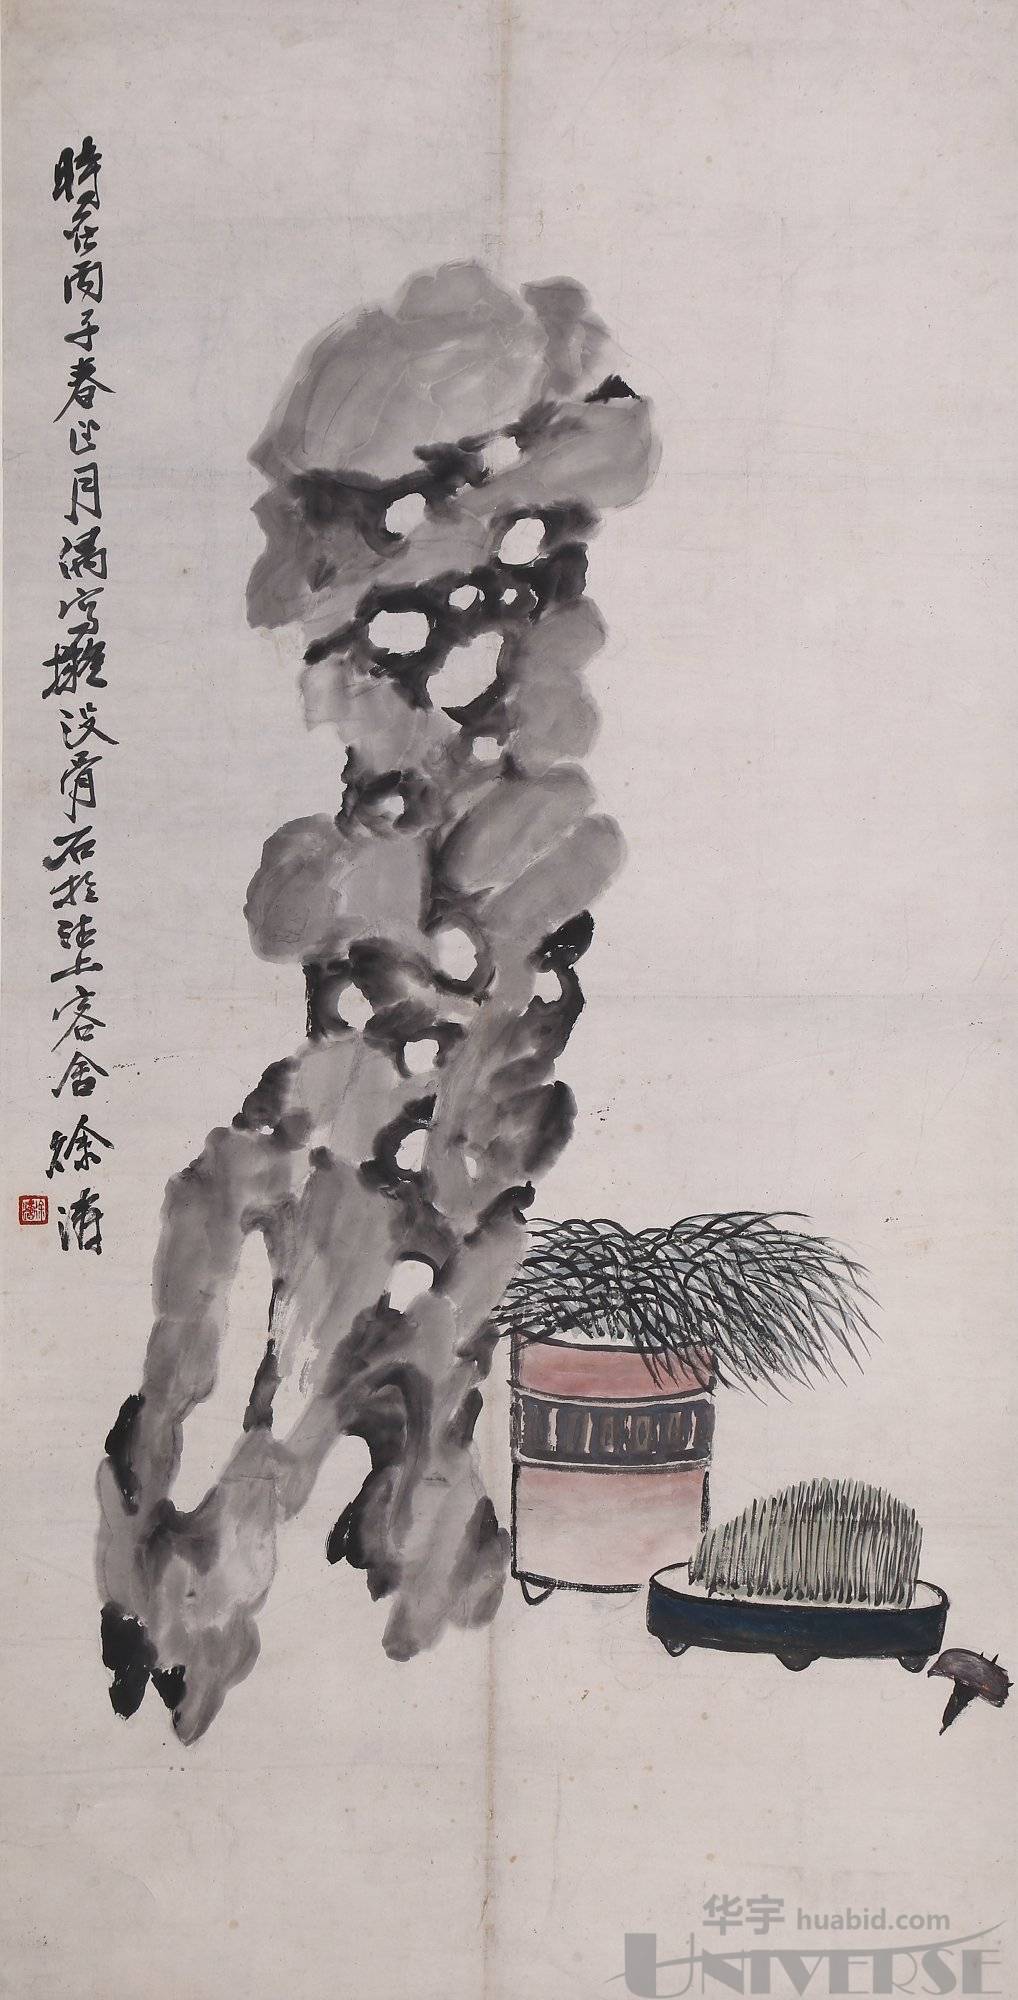 時在丙子春正月滿窗擬沒骨石於沽上客舍 徐濤
徐濤
华宇 huabid.com
UNIVERSE